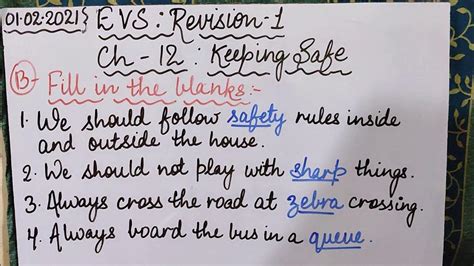 01.02.2021 EVS : Revision-1
Ch - 12 : Keeping Safe
B- Fill in the blanks:-
1. We should follow safety rules inside
and outside the house.
2. We should not play with sharp things.
3. Always cross the road at zebra crossing.
4. Always board the bus in a queue.